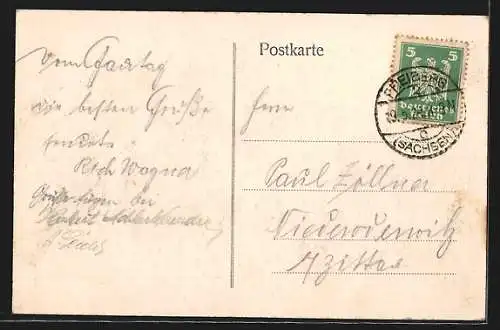 Postkarte
5 5
Deutsches Reich
FREIBERG
(SACHSEN)
vom Gautag
die besten Grüße
sendet
Rich Wagner
Grüße fügen bei
Herrn
Paul Zöllner
Niederoderwitz
b/Zittau